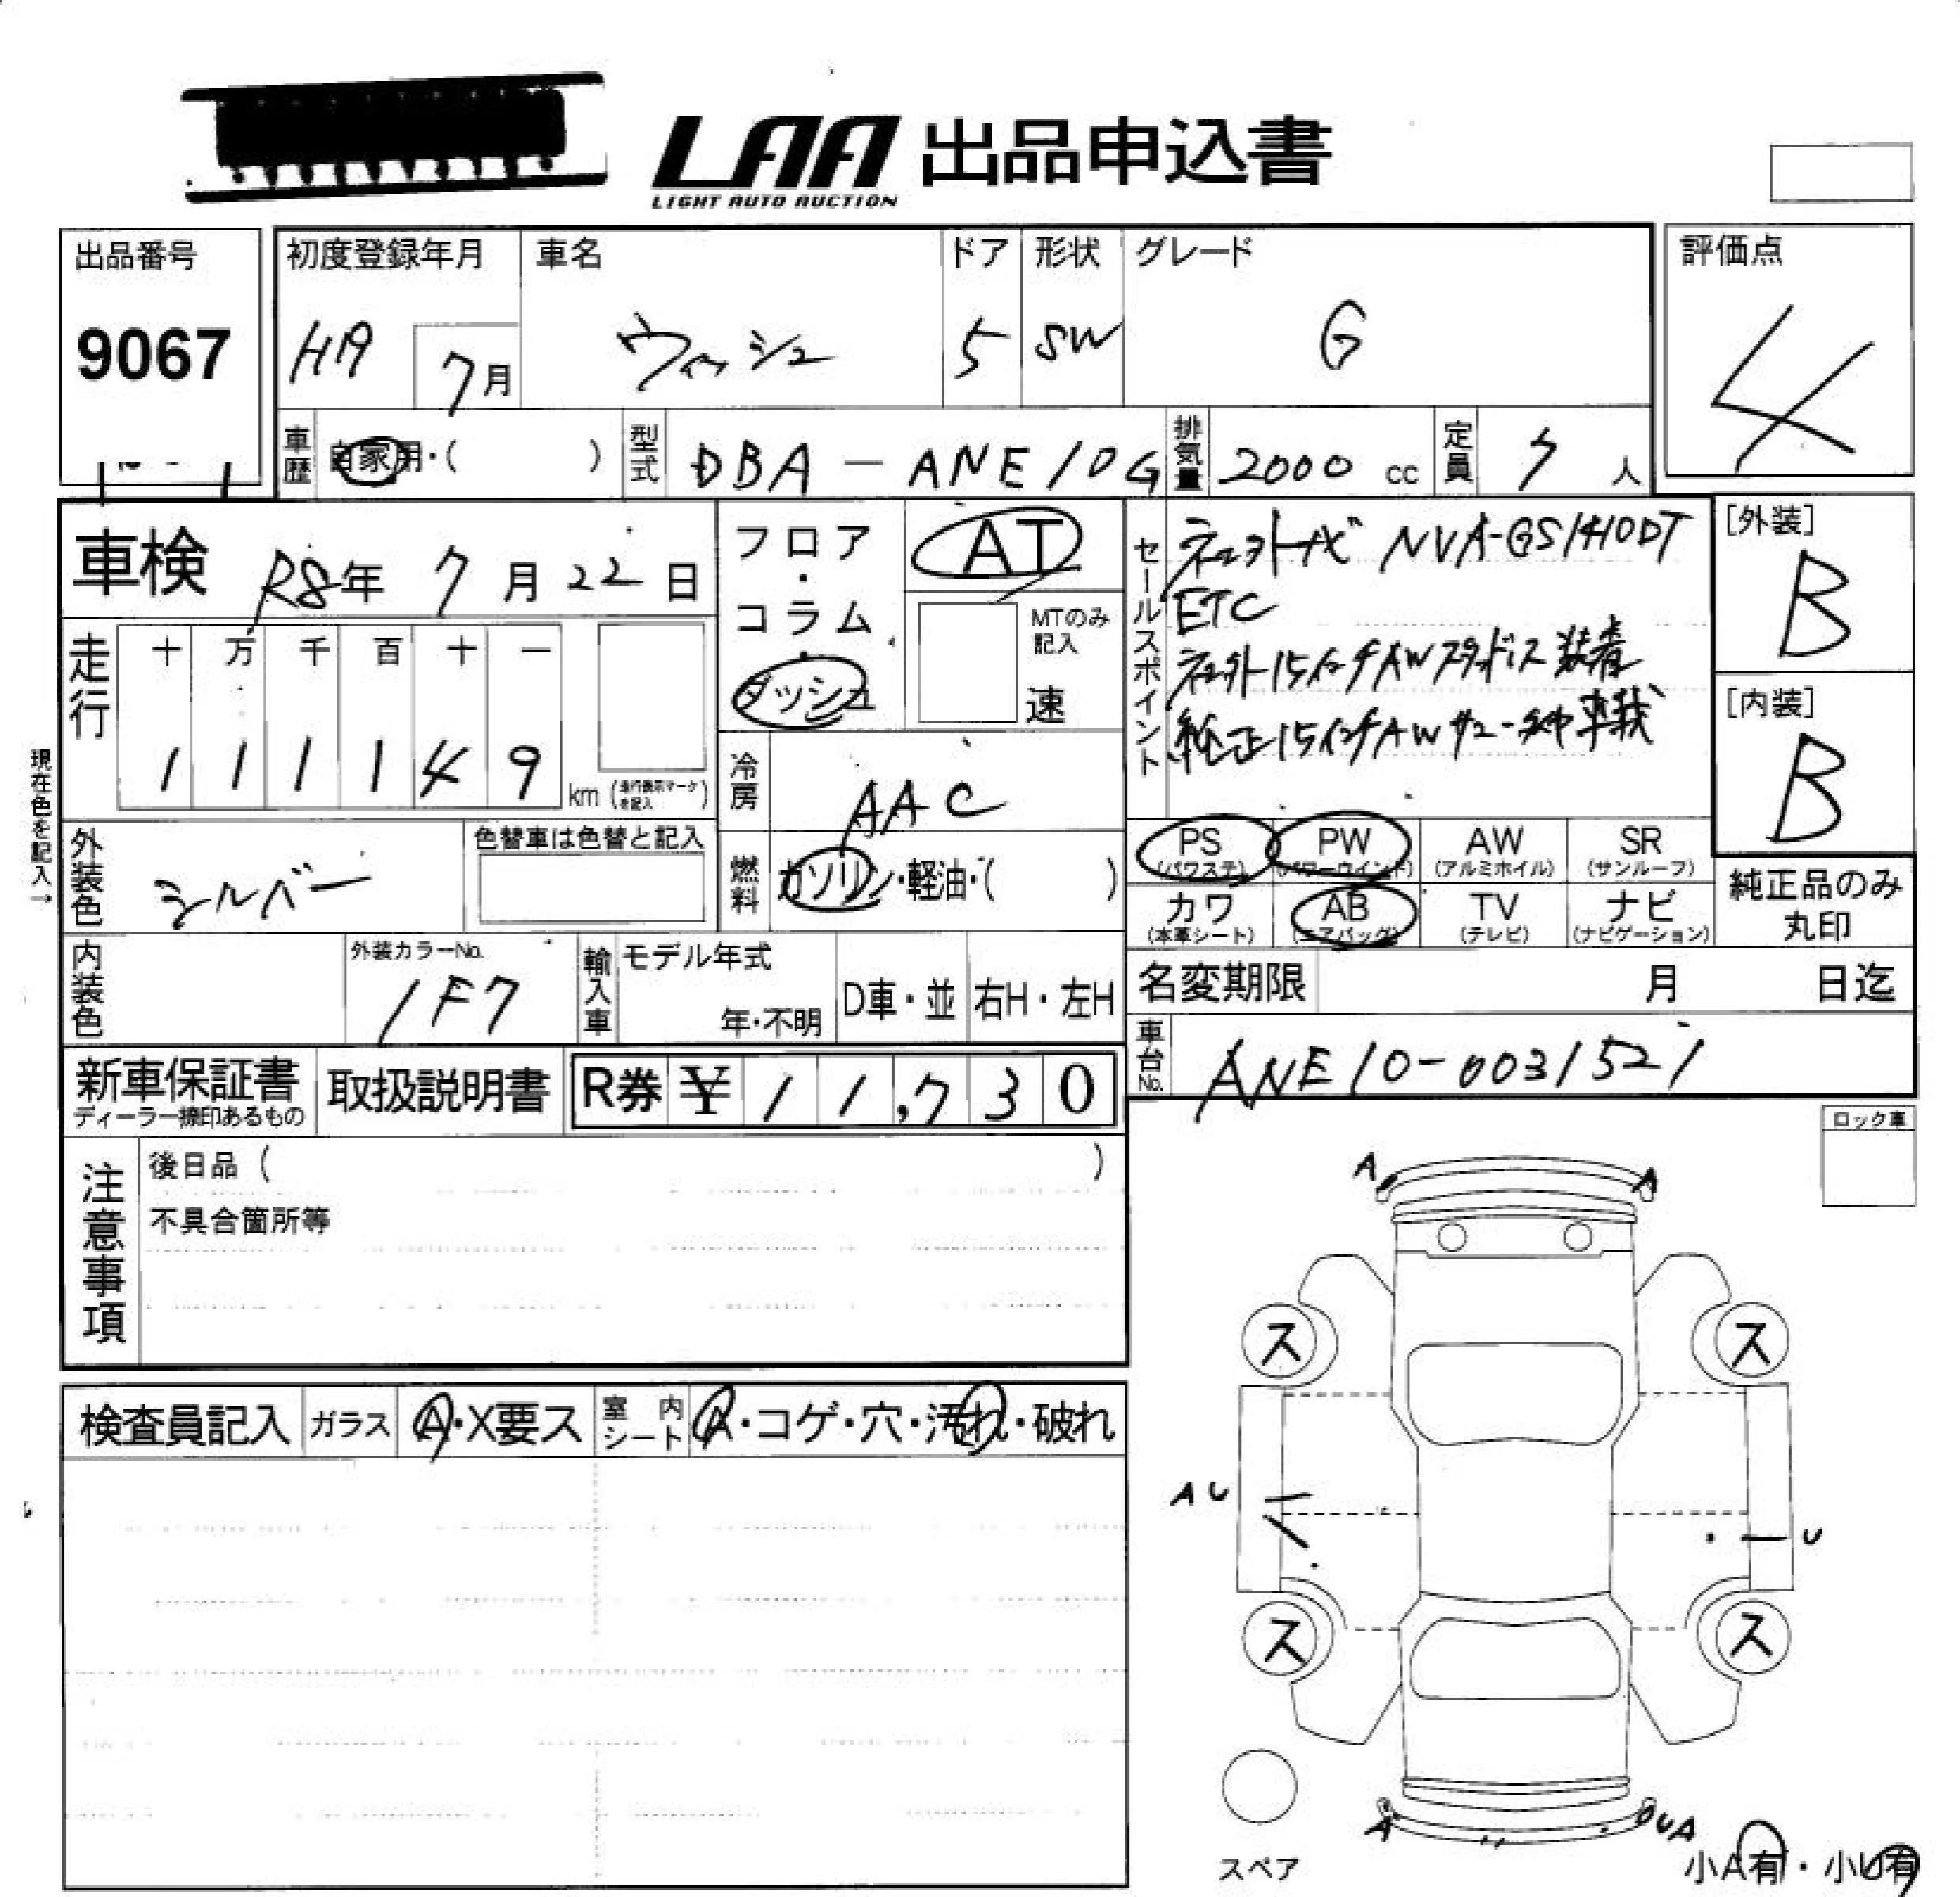 LAA 出品申込書
LIGHT AUTO AUCTION
出品番号
9067
初度登録年月
H19 7月
車名
ウィッシュ
ドア
5
形状
SW
グレード
G
評価点
4
車歴 自家用・( )
型式 DBA-ANE10G
排気量 2000 cc
定員 7 人
車検 R8年 7月 22日
走行
十 万 千 百 十 一
1 1 1 1 4 9 km (走行表示マークを記入)
現在色を記入→
外装色 シルバー
色替車は色替と記入
内装色
外装カラーNo.
1F7
フロア・コラム・ダッシュ
AT
MTのみ記入
速
冷房 AAC
燃料 ガソリン・軽油・( )
輸入車
モデル年式
年・不明
D車・並
右H・左H
セールスポイント
NVA-GS1410DT
ETC
15インチAWスタッドレス装着
純正15インチAW 車載
[外装]
B
[内装]
B
PS (パワステ)
PW (パワーウインド)
AW (アルミホイル)
SR (サンルーフ)
カワ (本革シート)
AB (エアバッグ)
TV (テレビ)
ナビ (ナビゲーション)
純正品のみ丸印
名変期限 月 日迄
車台No. ANE10-0031521
新車保証書
ディーラー捺印あるもの
取扱説明書
R券 ¥ 11,730
注意事項
後日品 ( )
不具合箇所等
ロック車
検査員記入
ガラス A・X要ス
室内シート A・コゲ・穴・汚れ・破れ
A A
ス ス
AU
U
ス ス
A
UA
スペア
小A有・小U有